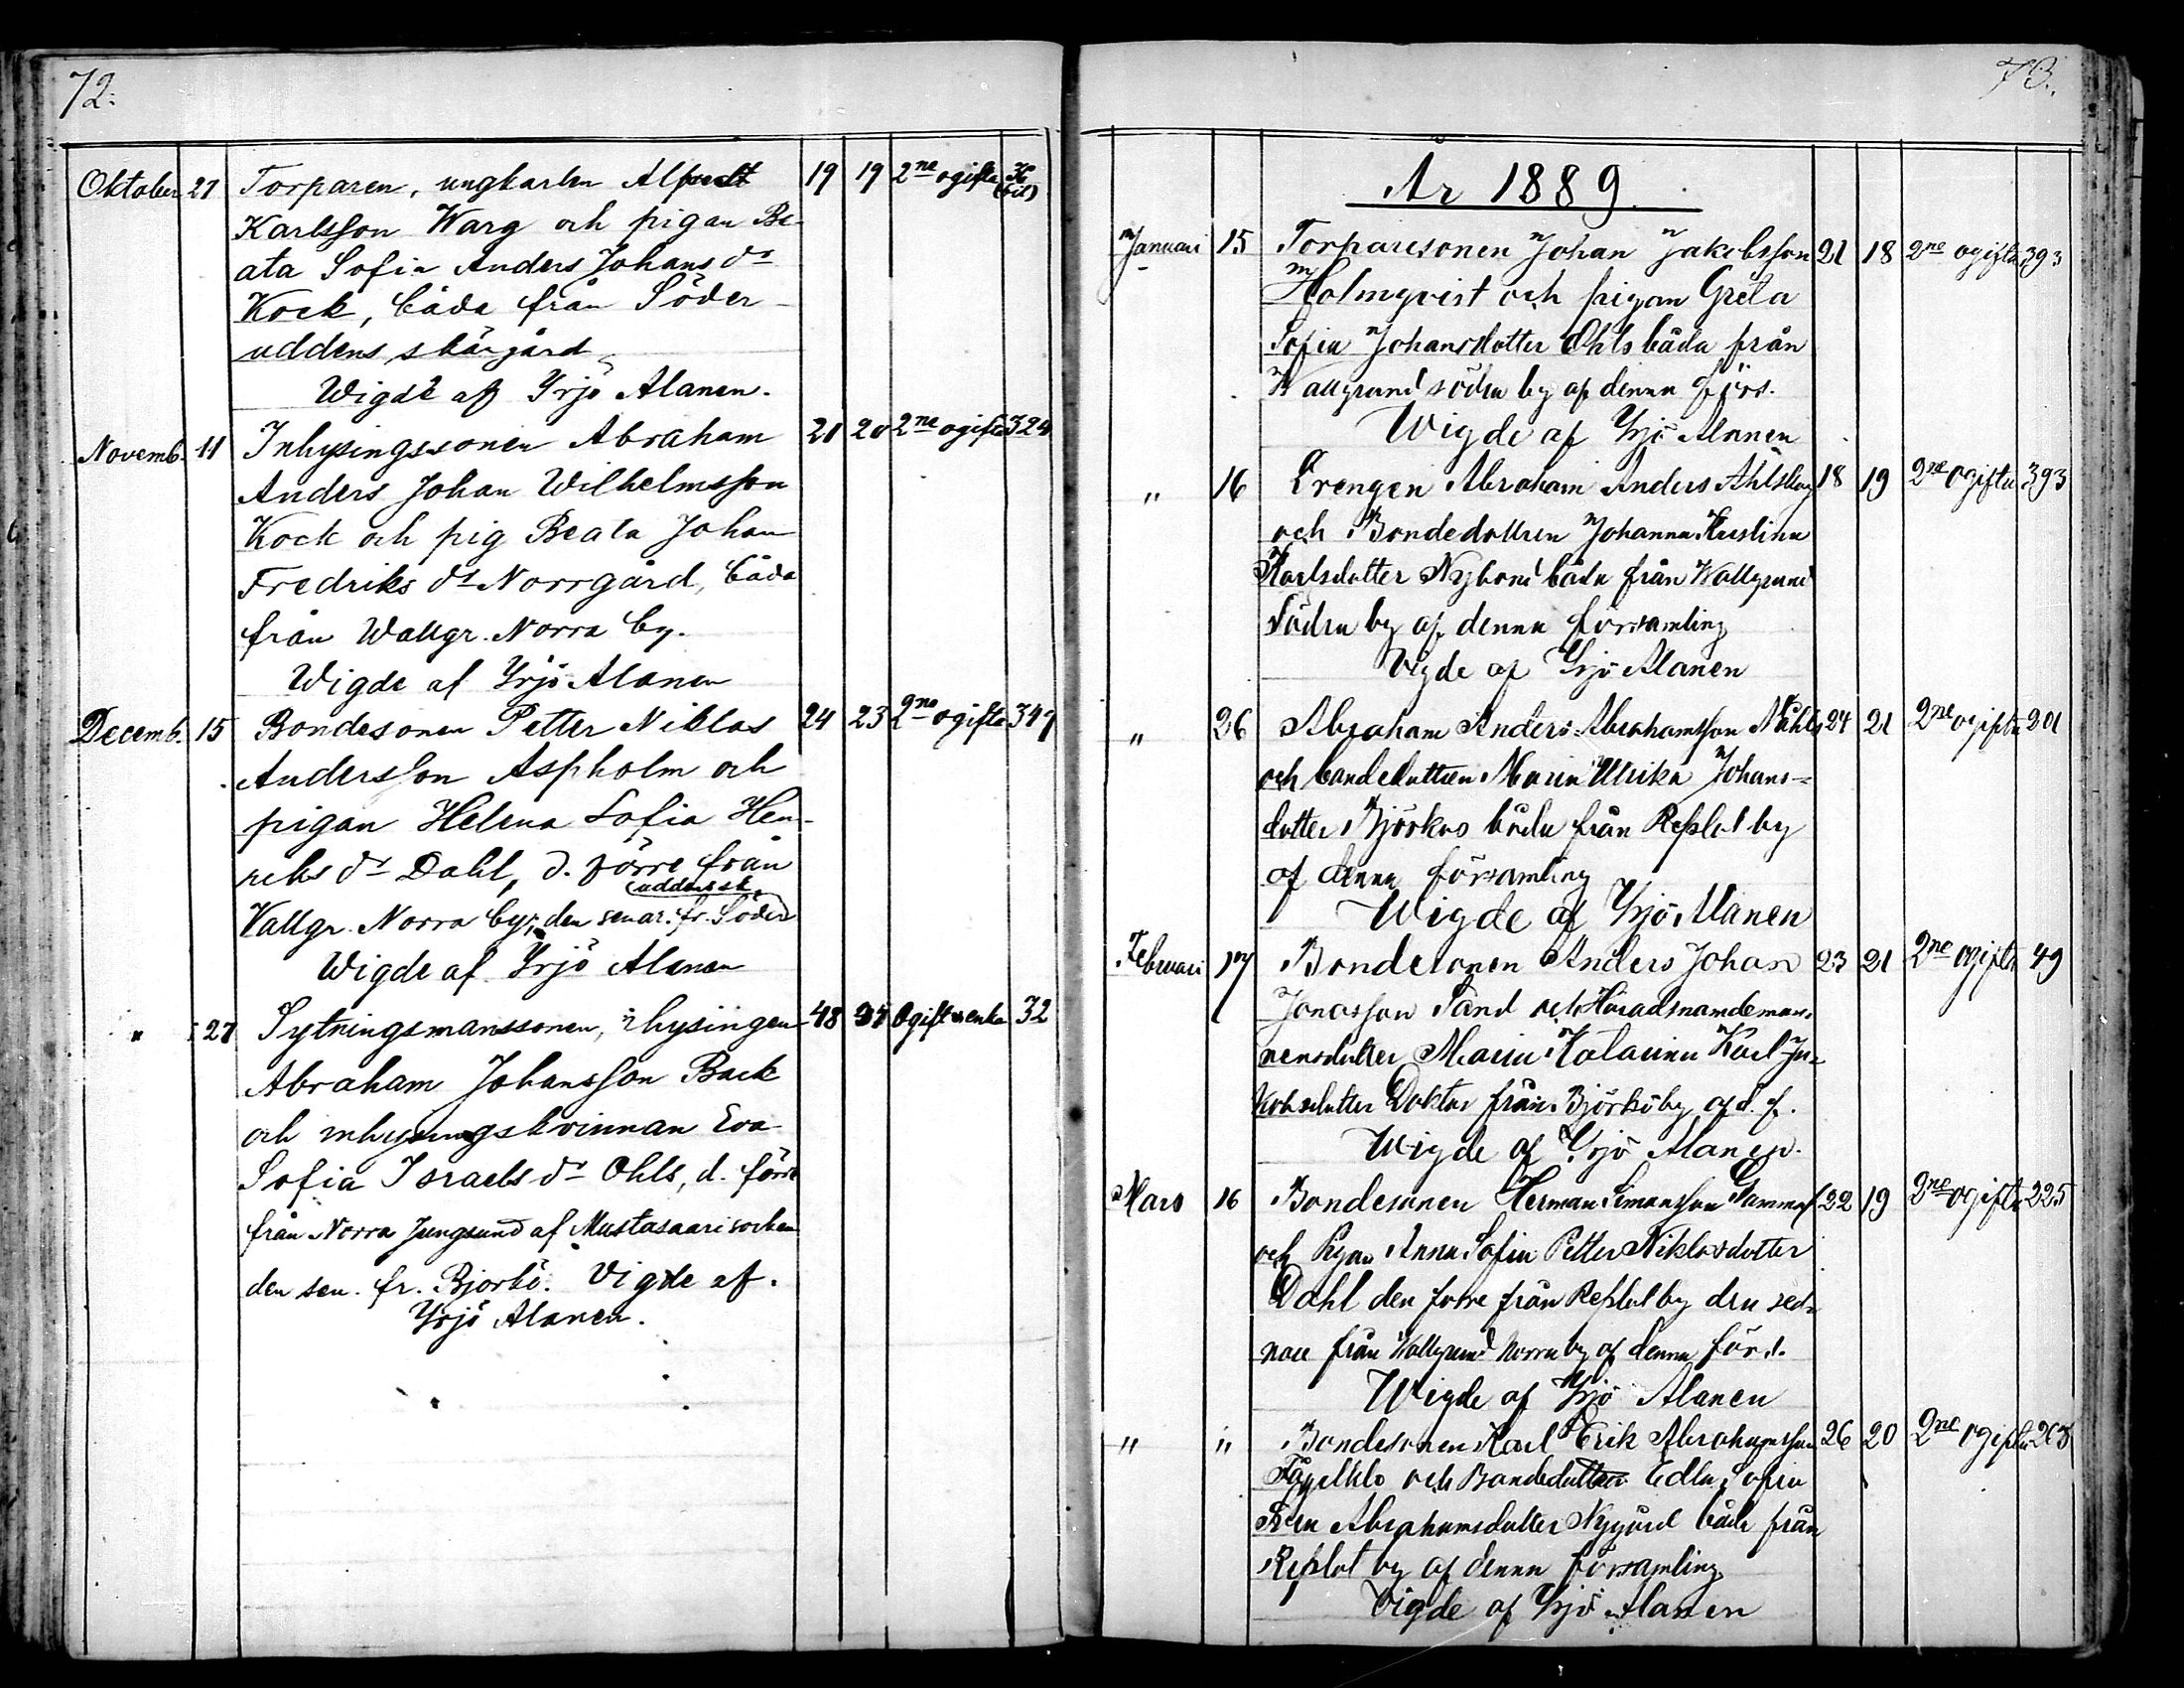 72.
Oktober 27 Torparen, ungkarlen Alfred 19 19 2ne ogifta
Karlsson Warg och pigan Be-
ata Sofia Anders Johans dr
Kock, båda från Söder-
uddens skärgård
Wigde af Yrjö Alanen.
Novemb. 11 Inhysingssonen Abraham 21 20 2ne ogifta 324
Anders Johan Wilhelmsson
Kock och pig Beata Johan
Fredriks dr Norrgård, båda
från Wallgr. Norra by.
Wigde af Yrjö Alanen
Decemb. 15 Bondesonen Petter Niklas 24 23 2ne ogifta
Andersson Aspholm och
pigan Helena Sofia Hen-
riks dr Dahl, d. förre från
uddens sk.
Vallgr. Norra by, den senar. fr. Söder
Wigde af Yrjö Alanen
" 27 Sytningsmanssonen, inhysingen 48 Ogift enka 32
Abraham Johansson Back
och inhysingskvinnan Eva
Sofia Israels dr Ohls, d. förre
från Norra Jungsund af Mustasaari socken
den sen. fr. Björkö. Vigde af.
Yrjö Alanen.
73.
År 1889.
Januari 15 Torparesonen Johan Jakobsson 21 18 2ne ogifta 393
Holmqvist och pigan Greta
Sofia Johansdotter Ohls båda från
Wallgrund södra by af denna förs.
Wigde af Yrjö Alanen
" 16 Drengen Abraham Anders Ahlskog 18 19 2ne ogifta 393
och Bondedottren Johanna Kristina
Karlsdotter Nybond båda från Wallgrund
Södra by af denna församling
Vigde af Yrjö Alanen
" 26 Abraham Anders Abrahamsson Nåhls 24 21 2ne ogifta 201
och bondedottren Maria Ulrika Johans-
dotter Björkas båda från Replot by
af denna församling
Wigde af Yrjö Alanen
Februari 17 Bondesonen Anders Johan 23 21 2ne ogifta 49
Jonasson Sand och Häradsnämdeman-
nensdotter Maria Katarina Karl Ja-
kobsdotter Doktar från Björköby af d. f.
Wigde af Yrjö Alanen.
Mars 16 Bondesonen Herman Simonsson Gammal 22 19 2ne ogifta 225
och Pigan Anna Sofia Petter Niklasdotter
Dahl den förre från Replot by den sed-
nare från Wallgrund Norra by af denna förs.
Wigde af Yrjö Alanen
" " Bondesonen Karl Erik Abrahamsson 26 20 2ne ogifta
och Bondedottren Edla Sofia
Abrahamsdotter Nygård båda från
Replot by af denna församling
Vigde af Yrjö Alanen